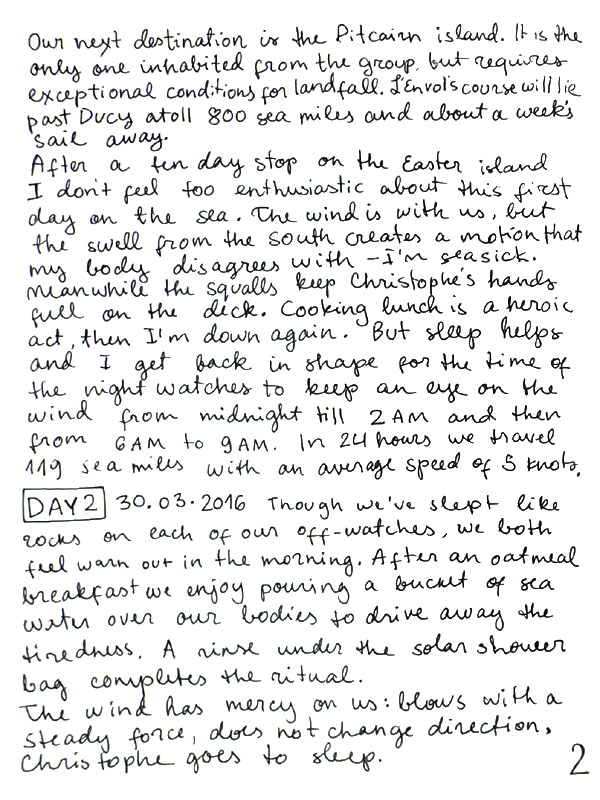 Our next destination is the Pitcairn island. It is the
only one inhabited from the group, but requires
exceptional conditions for landfall. L'Envol's course will lie
past Ducy atoll 800 sea miles and about a week's
sail away.
After a ten day stop on the Easter island
I don't feel too enthusiastic about this first
day on the sea. The wind is with us, but
the swell from the south creates a motion that
my body disagrees with – I'm seasick.
Meanwhile the squalls keep Christophe's hands
full on the deck. Cooking lunch is a heroic
act, then I'm down again. But sleep helps
and I get back in shape for the time of
the night watches to keep an eye on the
wind from midnight till 2 AM and then
from 6 AM to 9 AM. In 24 hours we travel
119 sea miles with an average speed of 5 knots.
DAY 2 30.03.2016 Though we've slept like
rocks on each of our off-watches, we both
feel warn out in the morning. After an oatmeal
breakfast we enjoy pouring a bucket of sea
water over our bodies to drive away the
tiredness. A rinse under the solar shower
bag completes the ritual.
The wind has mercy on us: blows with a
steady force, does not change direction,
Christophe goes to sleep.
2